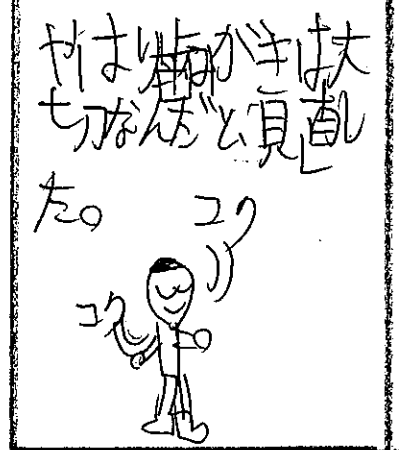 やはり歯みがきは大
切なんだと見直し
た。
コク
コク